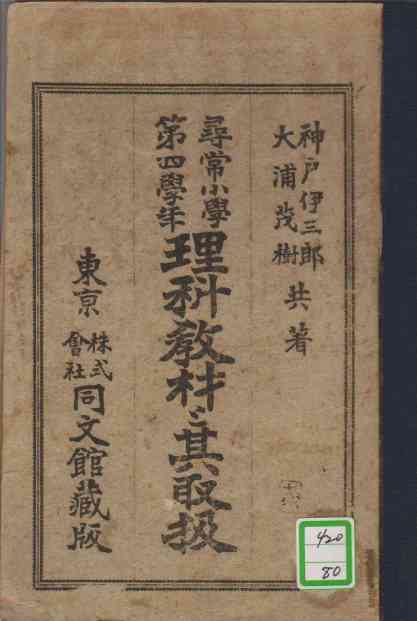 神戸伊三郎
大浦茂樹
共著
尋常小學
第四學年
理科敎材と其取扱
東京
株式
會社
同文館藏版
420
80